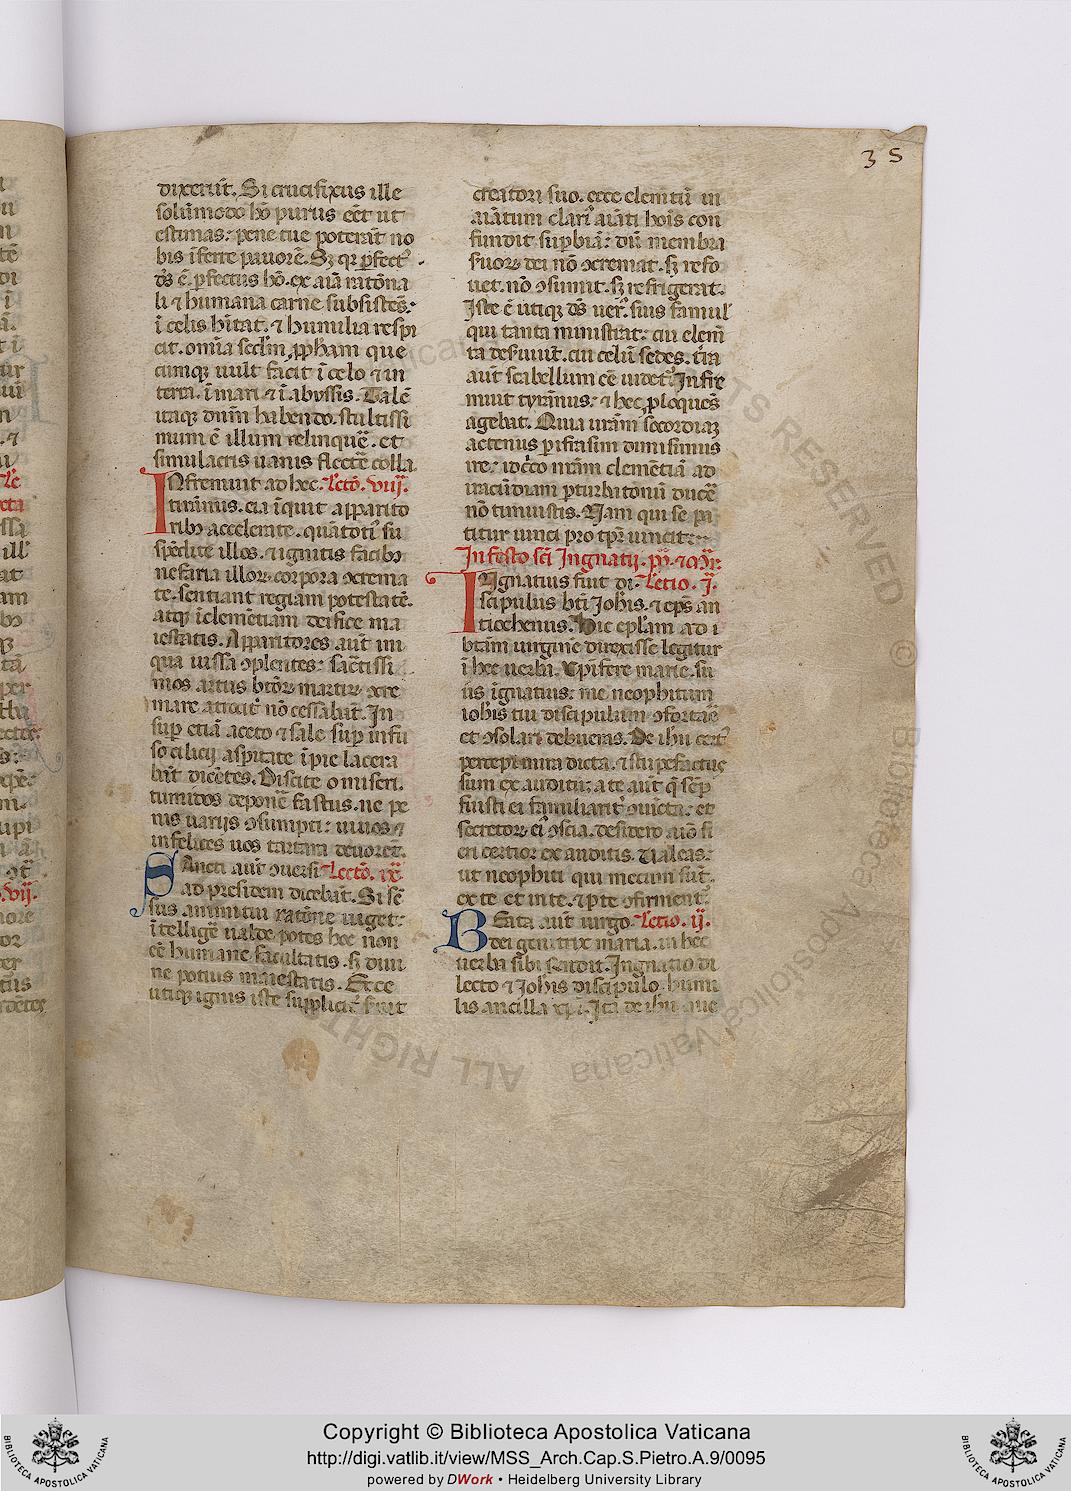 35
dixerūt. Si crucifixus ille
solūmodo hō purus eēt ut
estimas: pene tue poterāt no
bis īferre pauorē. Sꝫ qꝛ ꝑfectꝰ
dꝰ ē ꝑfectus hō. ex aīa ratōna
li ⁊ humana carne subsistēs:
ī celis hītat. ⁊ humilia respi
cit. omīa scdꝫ ꝓpham que
cumqꝫ uult facit ī celo ⁊ in
terra. ī mari ⁊ ī abyssis. Talē
itaqꝫ dnm habendo. stultissi
mum ē illum relinquē. et
simulacris uanis flectē colla.
INfremuit ad hec. Lectō. viij.
tirānus. eia īquit apparito
ribꝫ accelerate. quātotiꝰ su
spēdite illos. ⁊ ignitis facibꝫ
nefaria illoꝝ corpora ꝯcrema
te. sentiant regiam potestatē.
atqꝫ īclemētiam deifice ma
iestatis. Apparitores aūt ini
qua iussa ꝯplentes: sāctissi
mos artus btōꝝ martiꝝ ꝯcre
mare atrociꝰ nō cessabāt. In
suꝑ etiā aceto ⁊ sale suꝑ infu
so cilicij asꝑitate īpie lacera
bāt dicētes. Discite o miseri.
tumidos deponē fastus. ne pe
nis uarijs ꝯsumpti: uiuos ⁊
infelices uos tartara deuoret.
SAncti aūt ꝯuersi Lectō. ix.
ad presidem dicebāt. Si sē
sus animi tui ratōne uiget:
ītelligē ualde potes hec non
eē humane facultatis. sꝫ diui
ne potius maiestatis. Ecce
utiqꝫ ignis iste supplicitꝰ seruit
creatori suo. ecce elemtū in
aīatum clariꝰ aīati hoīs con
fundit suꝑbiā: dū membra
suoꝝ dei nō ꝯcremat. sꝫ refo
uet. nō ꝯsumit. sꝫ refrigerat.
Iste ē utiqꝫ dꝰ uerꝰ. suis famul
qui tanta ministrat: cui elem̄
ta deseruiūt. cui celū sedes. t̄ra
aūt scabellum eē uidetꝰ. Infre
muit tyrānus: ⁊ hec ꝓloquēs
agebat. Quia uram socordiaꝫ
actenus ꝑifrasim duxsimus
ire: idcc̄o nram clemētiā ad
iracūdiam ꝑturbatōnū ducē
nō timuistis. Nam qui se pa
titur uinci pro tꝑr uincit:
In festo scī Ingnatij. ꝑꝑ. ⁊ mr̄.
INgnatius fuit di- Lectio. j.
scipulus btī Johīs. ⁊ epꝰ an
tiochenus. Hic eplam ad ī
btām uirginē direxisse legitur
ī hec uerba. Xpifere marie. su
us ignatius: me neophitum
iohīs tui discipulum ꝯfortaē
et ꝯsolari debueras. De ihu certꝰ
percepi mira dicta. ⁊ stupefactus
sum ex auditu: a te aūt q̄ sēꝑ
fuisti ei familiaritꝰ ꝯiūcta: et
secretoꝝ eiꝰ ꝯscia. desidero aīo fi
eri certior ex auditis. Ualeas:
ut neophiti qui mecum sūt.
ex te et in te. ⁊ ꝑ te ꝯfirmentꝰ.
BEata aūt uirgo. Lectio. ij.
dei genitrix maria. in hec
uerba sibi scribit. Ingnatio di
lecto ⁊ Johīs discipulo. humi
lis ancilla xpī. Ita de ihu que
Copyright © Biblioteca Apostolica Vaticana
http://digi.vatlib.it/view/MSS_Arch.Cap.S.Pietro.A.9/0095
powered by DWork • Heidelberg University Library